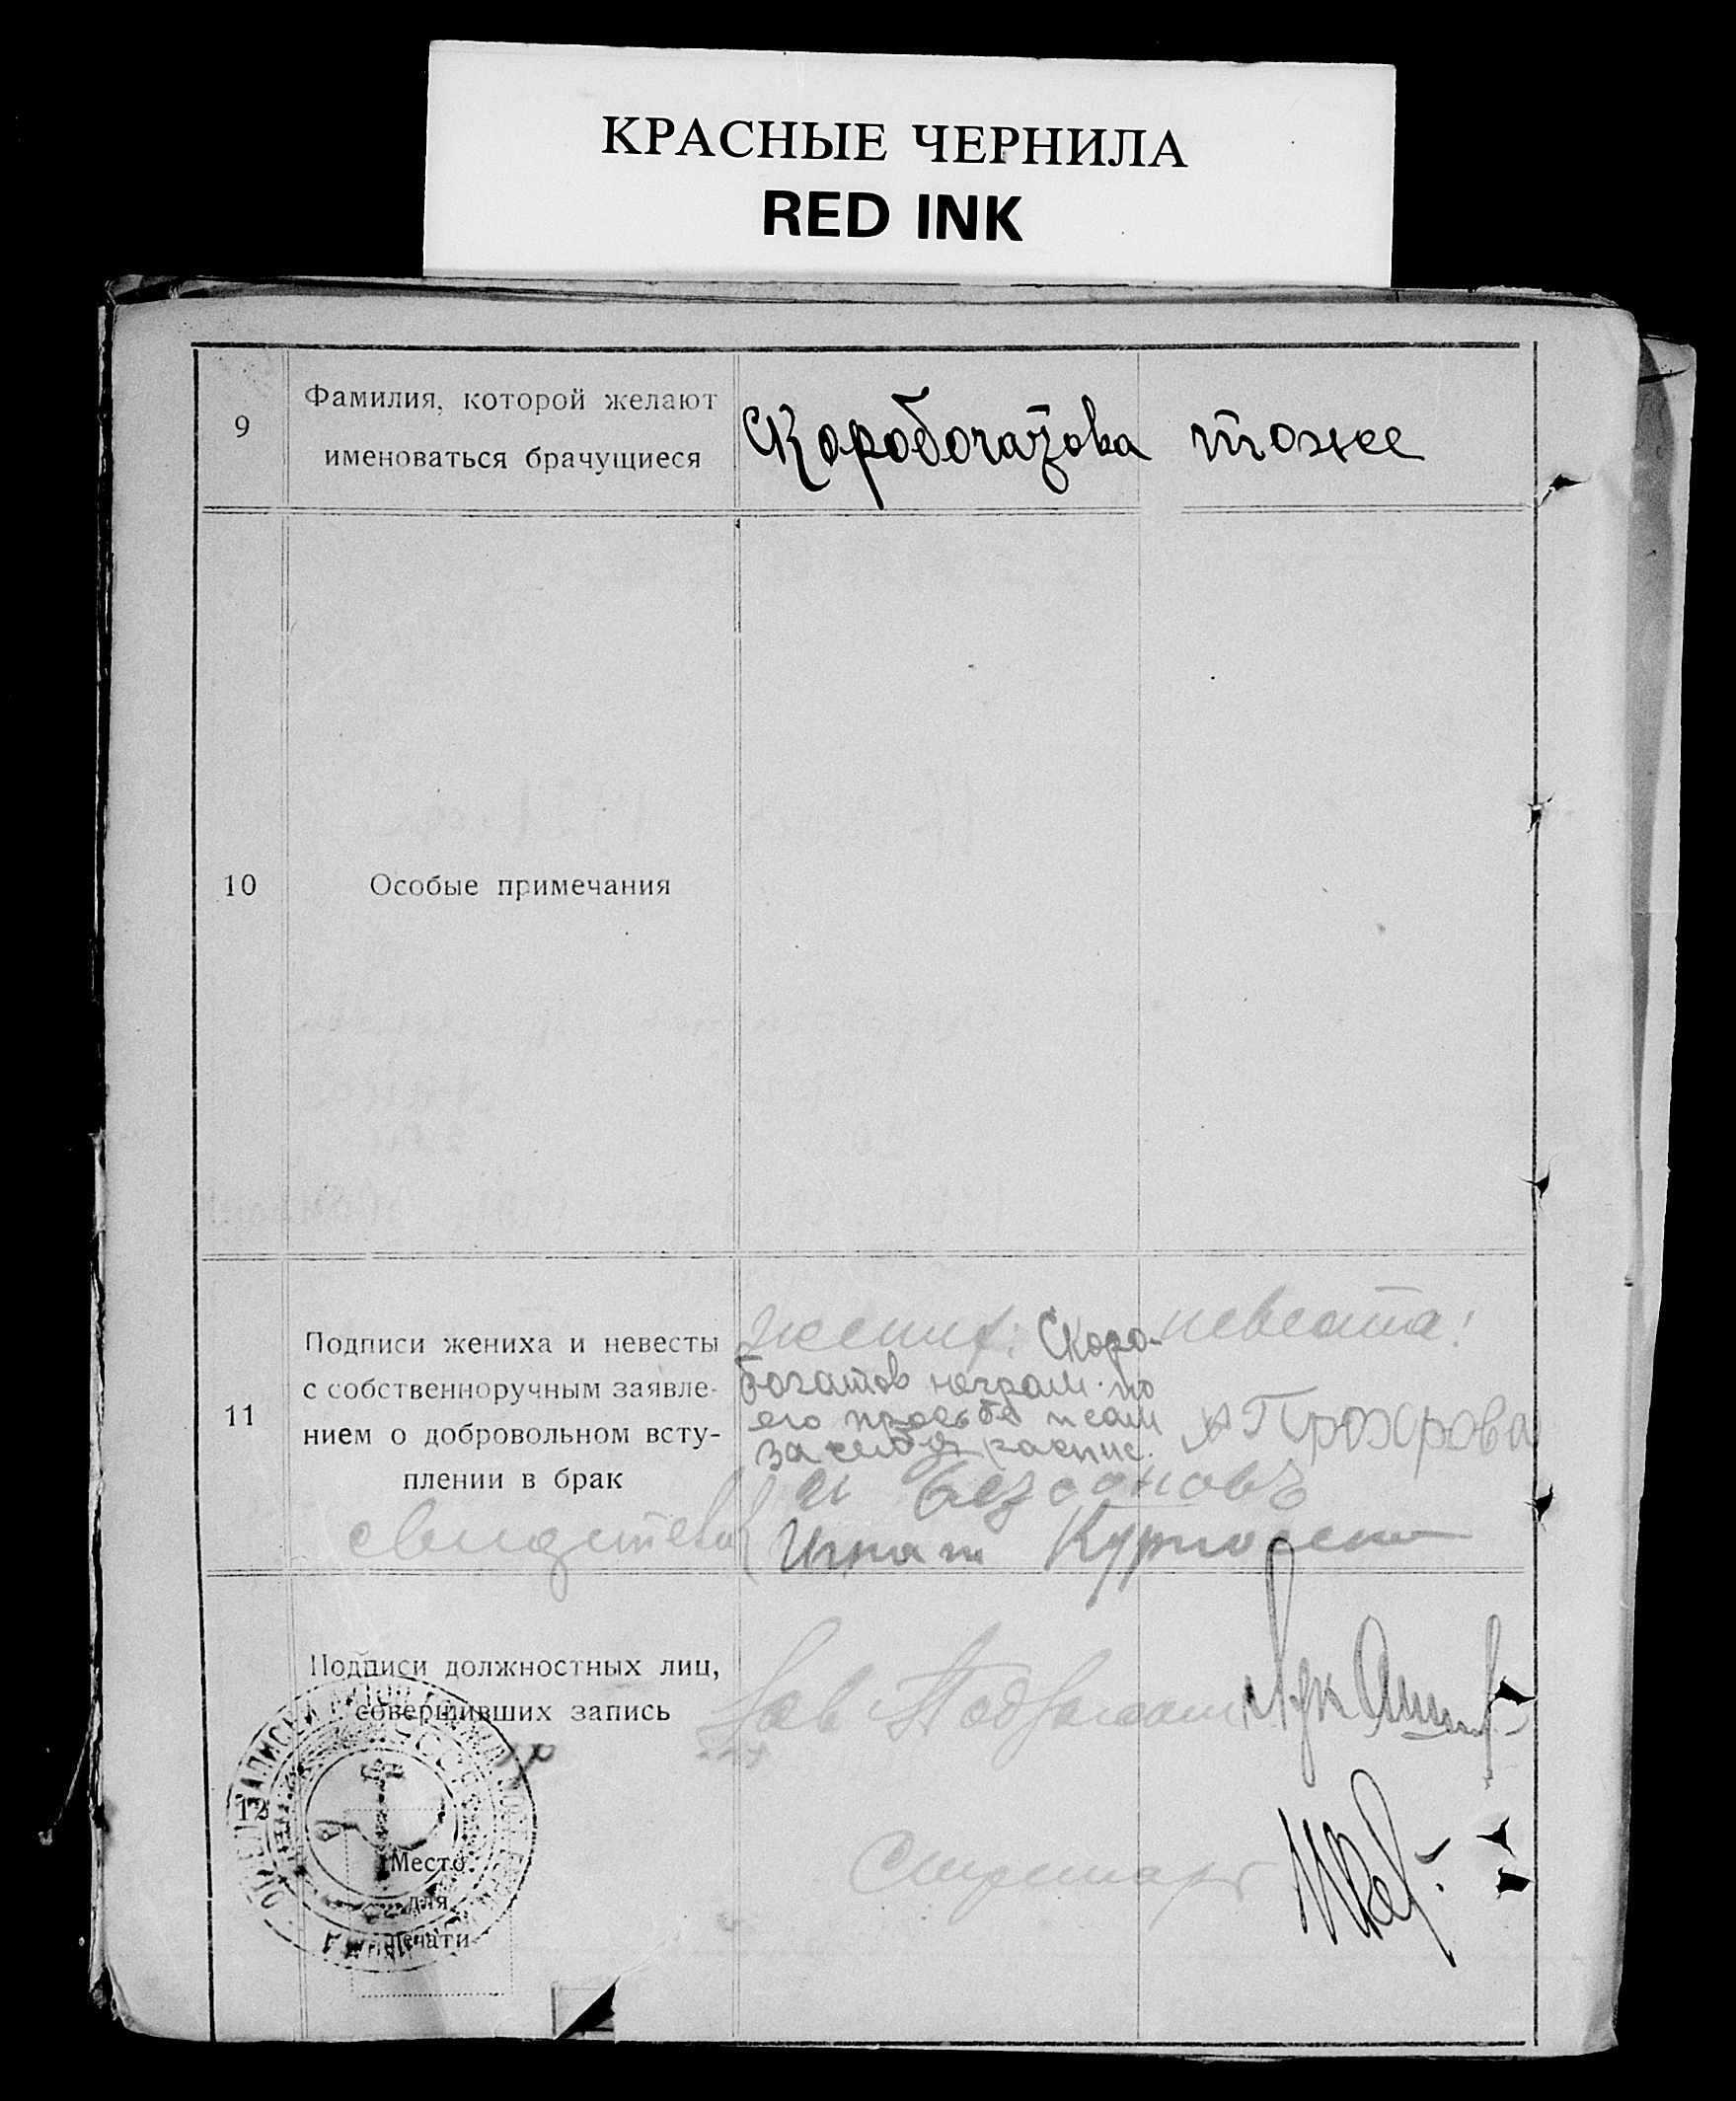 КРАСНЫЕ ЧЕРНИЛА
RED INK
9
Фамилия, которой желают
именоваться брачущиеся
Скоробогатова тоже
10
Особые примечания
11
Подписи жениха и невесты
с собственноручным заявле-
нием о добровольном всту-
плении в брак
жених: Скоро-
богатов неграм. по
его просьбе
за себя распис.
невеста:
А Прохорова
свидетели
и Безсоновъ
Игнат
12
Подписи должностных лиц,
совершивших запись
Зав Подотделом
Место
для
печати